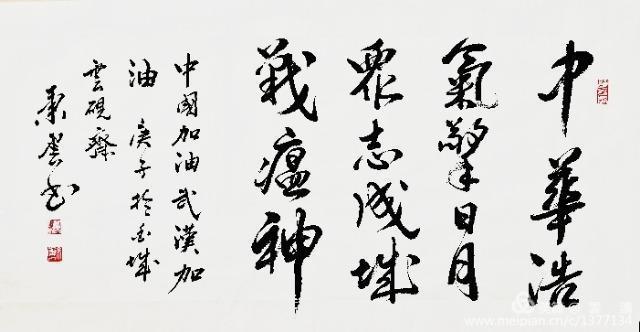 中華浩
氣擎日月
眾志成城
戰瘟神
中國加油武漢加
油 庚子於城
雲硯齋
書
www.meipian.cn/c/1377134